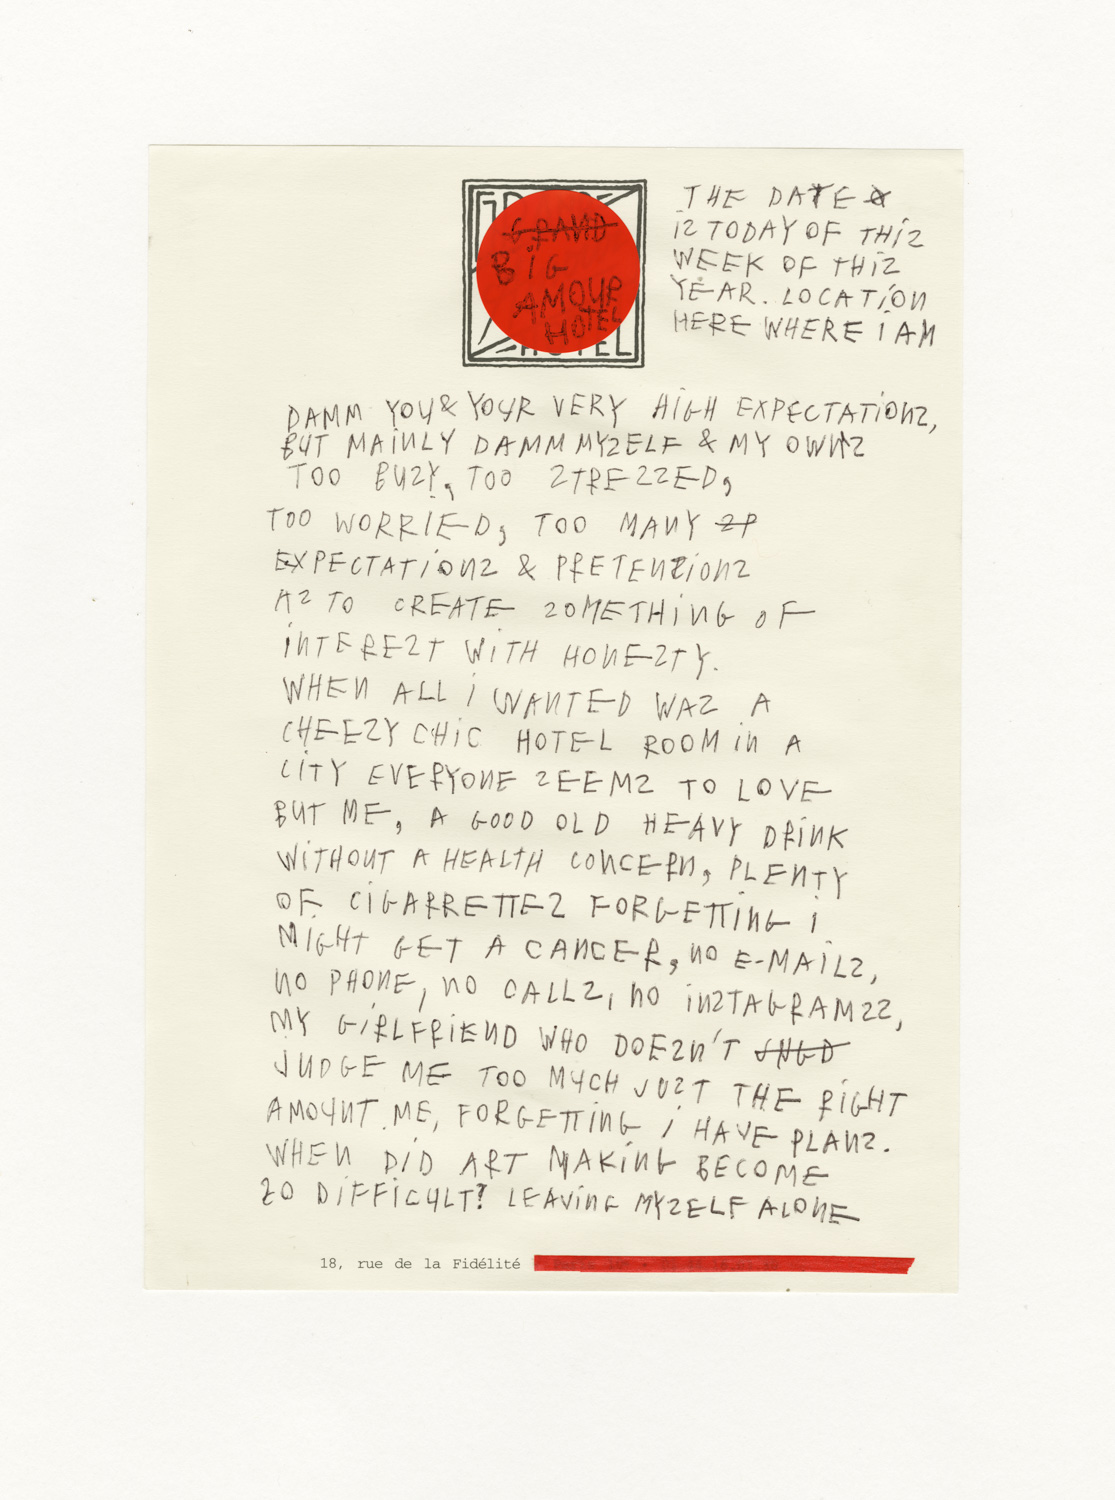 GRAND
BiG
AMOUR
HOTEL
HOTEL
THE DATE
iZ TODAY OF THiZ
WEEK OF THiZ
YEAR. LOCATiON
HERE WHERE i AM
DAMM YOU & YOUR VERY HiGH EXPECTATiONZ,
BUT MAiNLY DAMM MYZELF & MY OWNZ
TOO BUZY, TOO ZTREZZED,
TOO WORRIED, TOO MANY ZP
EXPECTATiONZ & PRETENZiONZ
AZ TO CREATE ZOMETHiNG OF
iNTEREZT WiTH HONEZTY.
WHEN ALL i WANTED WAZ A
CHEEZY CHiC HOTEL ROOM iN A
CiTY EVERYONE ZEEMZ TO LOVE
BUT ME, A GOOD OLD HEAVY DRiNK
WiTHOUT A HEALTH CONCERN, PLENTY
OF CiGARRETTEZ FORGETTiNG i
MiGHT GET A CANCER, NO E-MAiLZ,
NO PHONE, NO CALLZ, NO iNZTAGRAMZZ,
MY GiRLFRiEND WHO DOEZN'T JUGD
JUDGE ME TOO MUCH JUZT THE RiGHT
AMOUNT ME, FORGETTiNG i HAVE PLANZ.
WHEN DiD ART MAKiNG BECOME
ZO DiFFiCULT? LEAViNG MYZELF ALONE
18, rue de la Fidélité